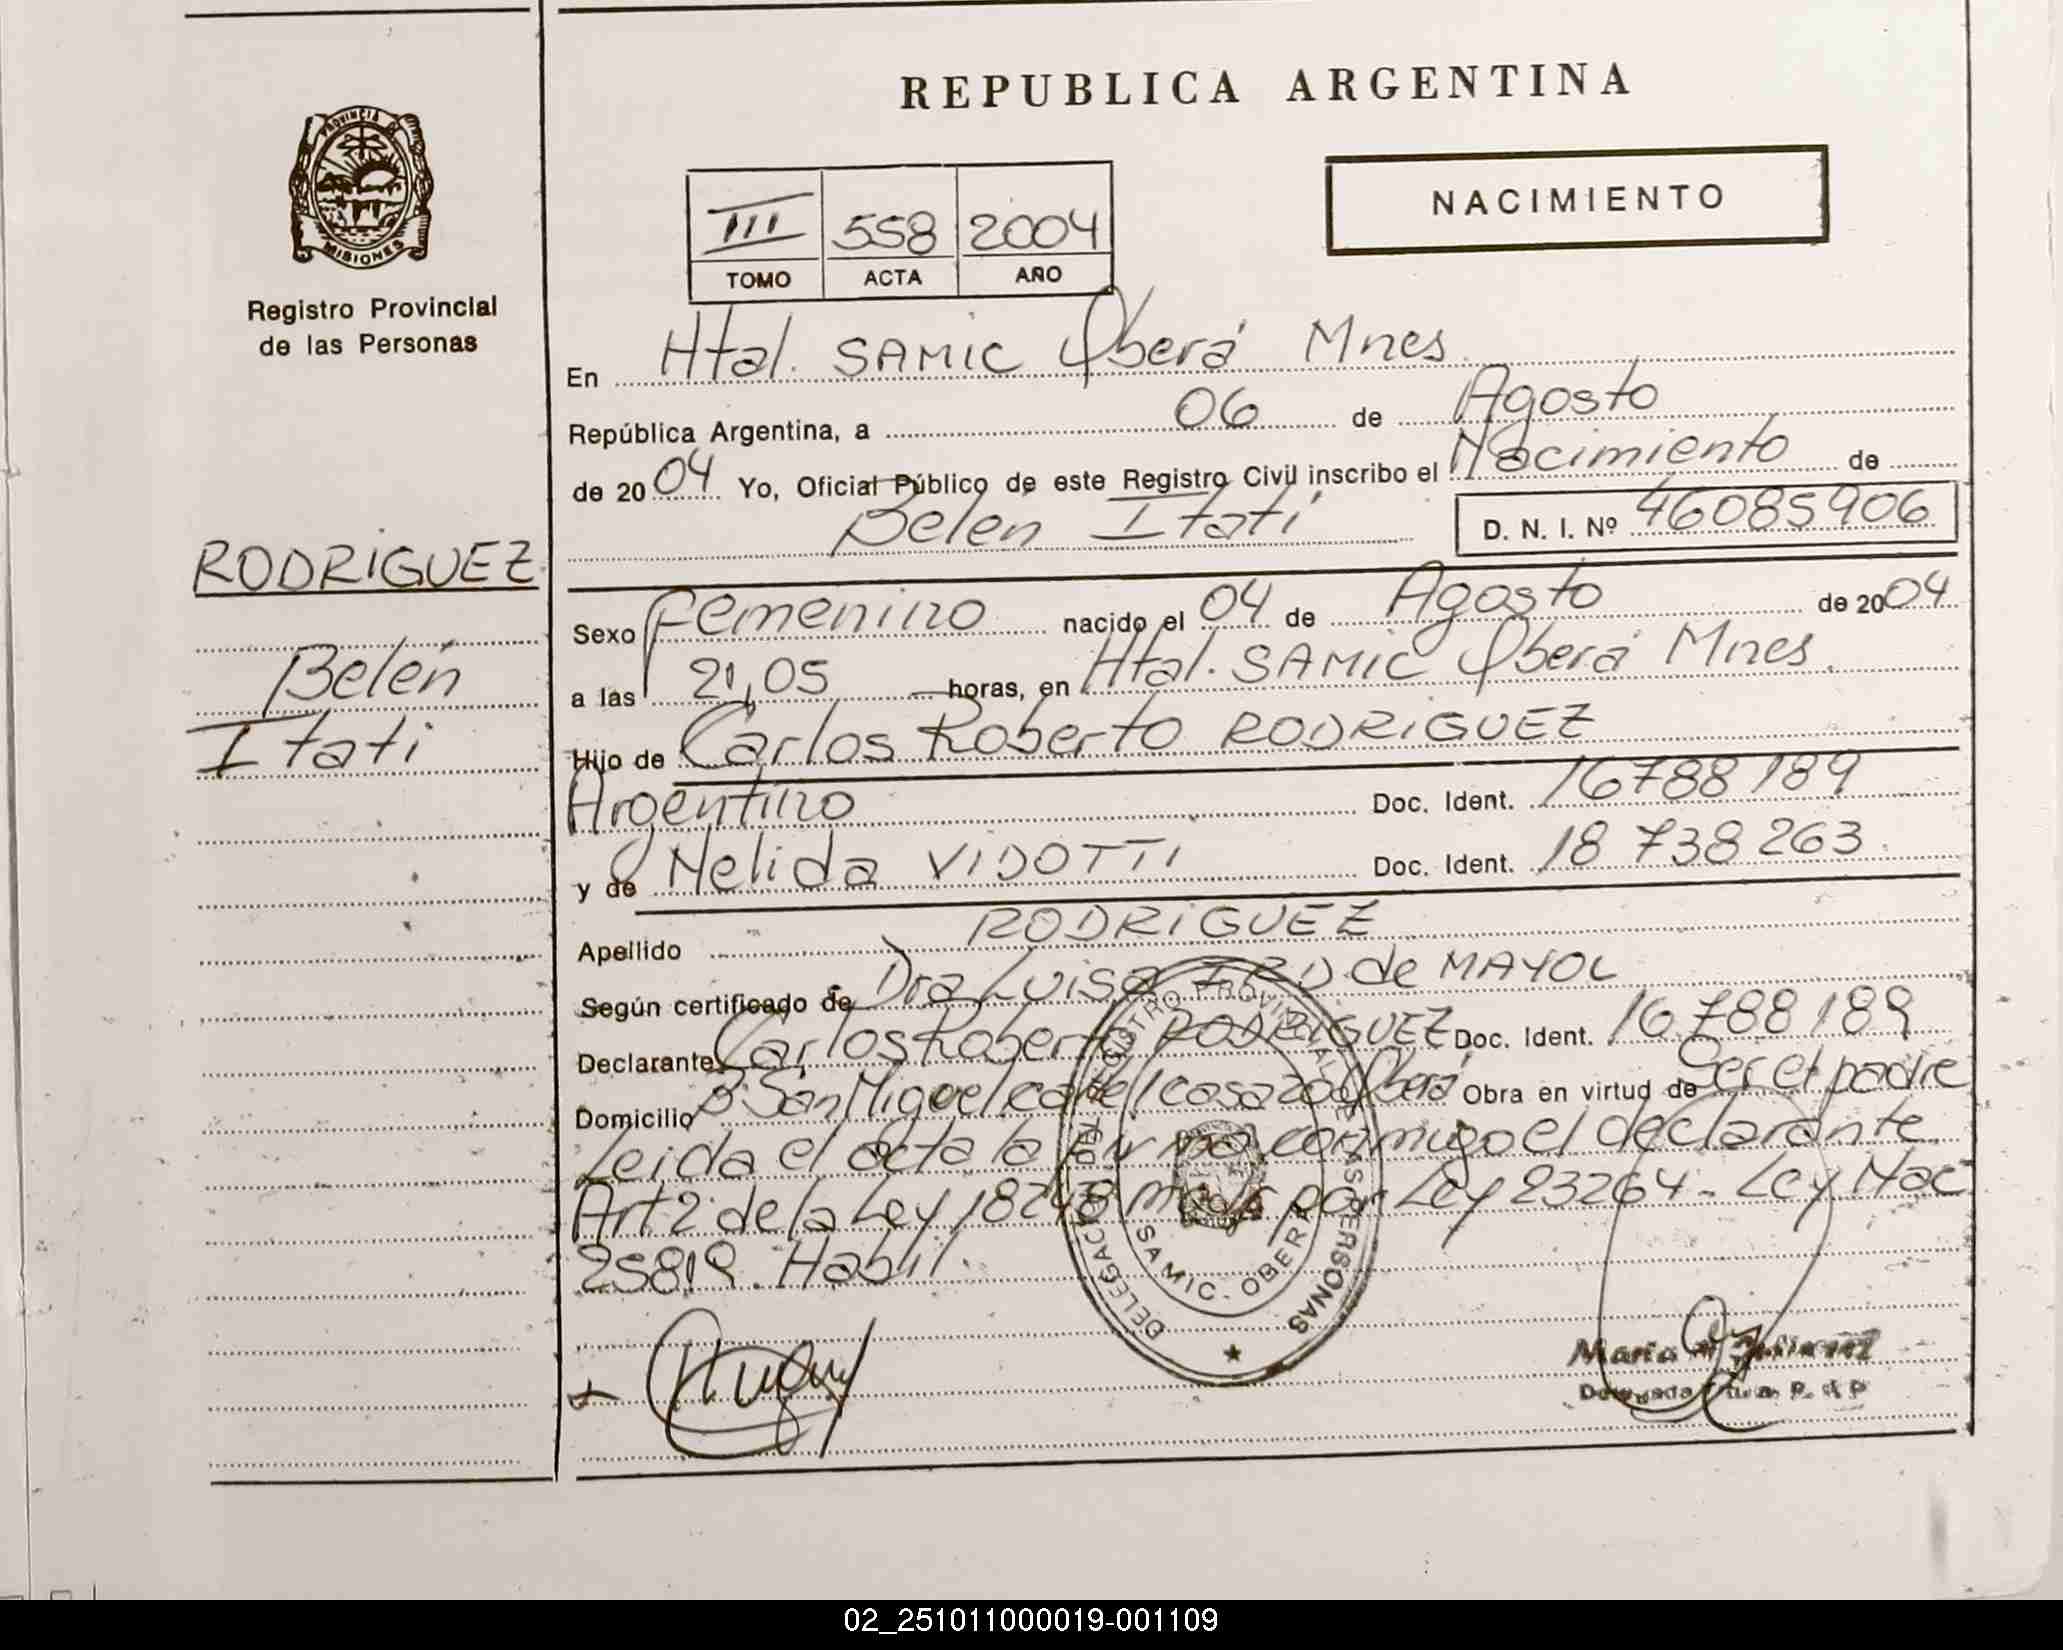 REPUBLICA ARGENTINA
PROVINCIA DE MISIONES
Registro Provincial
de las Personas
NACIMIENTO
III 558 2004
TOMO ACTA AÑO
En Htal. SAMIC Oberá Mnes.
República Argentina, a 06 de Agosto
de 2004 Yo, Oficial Público de este Registro Civil inscribo el Nacimiento de
Belén Itatí D. N. I. Nº 46085906
RODRIGUEZ
Belén
Itatí
Sexo Femenino nacido el 04 de Agosto de 2004
a las 21,05 horas, en Htal. SAMIC Oberá Mnes.
Hijo de Carlos Roberto RODRIGUEZ
Argentino Doc. Ident. 16788189
y de Nelida VIDOTTI Doc. Ident. 18 738 263.
Apellido RODRIGUEZ
Según certificado de Dra Luisa de MAYOL
Declarante Carlos Roberto RODRIGUEZ Doc. Ident. 16 788 189
Domicilio Bº San Miguel calle 1 casa 20 Oberá Obra en virtud de Ser el padre
Leida el acta la firma conmigo el declarante.
Art 2 de la Ley 18248 modf por Ley 23264 - Ley Nac
25819. Habil.
REGISTRO PROVINCIAL DE LAS PERSONAS
DELEGACION
SAMIC - OBERA
Maria
Delegada R. P.
02_251011000019-001109